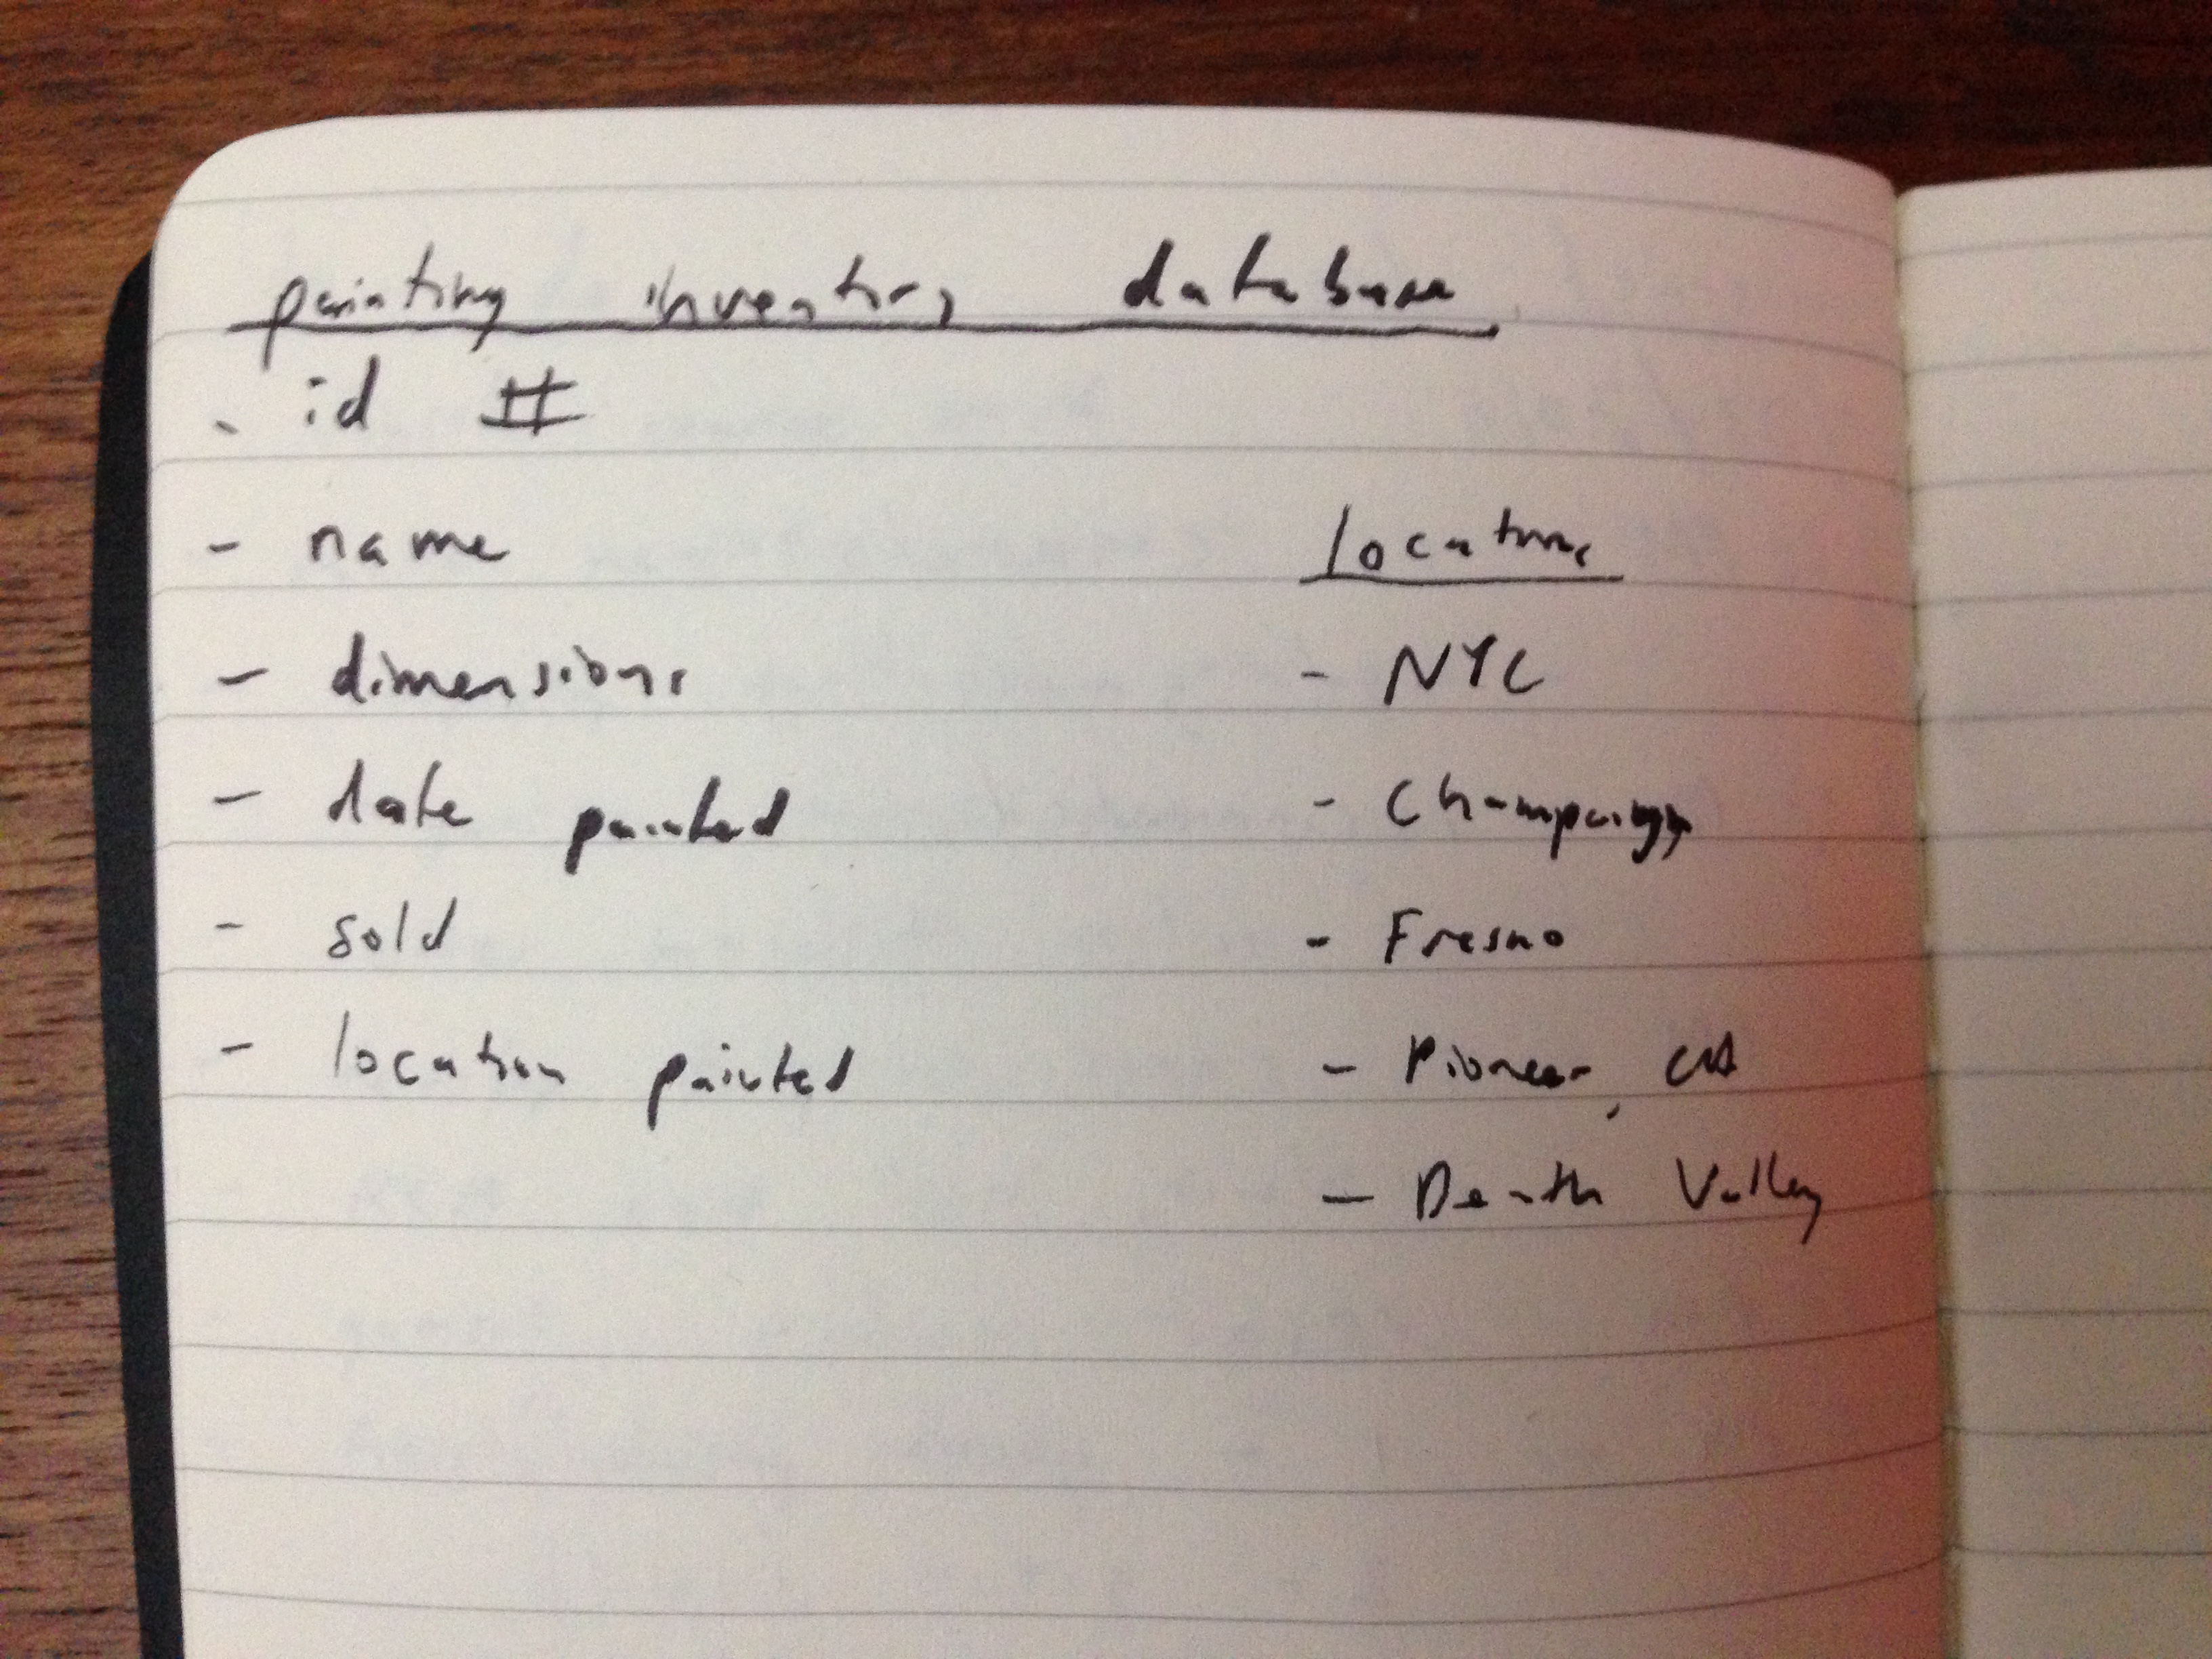 painting inventory database
- id #
- name
- dimensions
- date painted
- sold
- location painted
locations
- NYC
- Champaign
- Fresno
- Pioneer, CA
- Death Valley